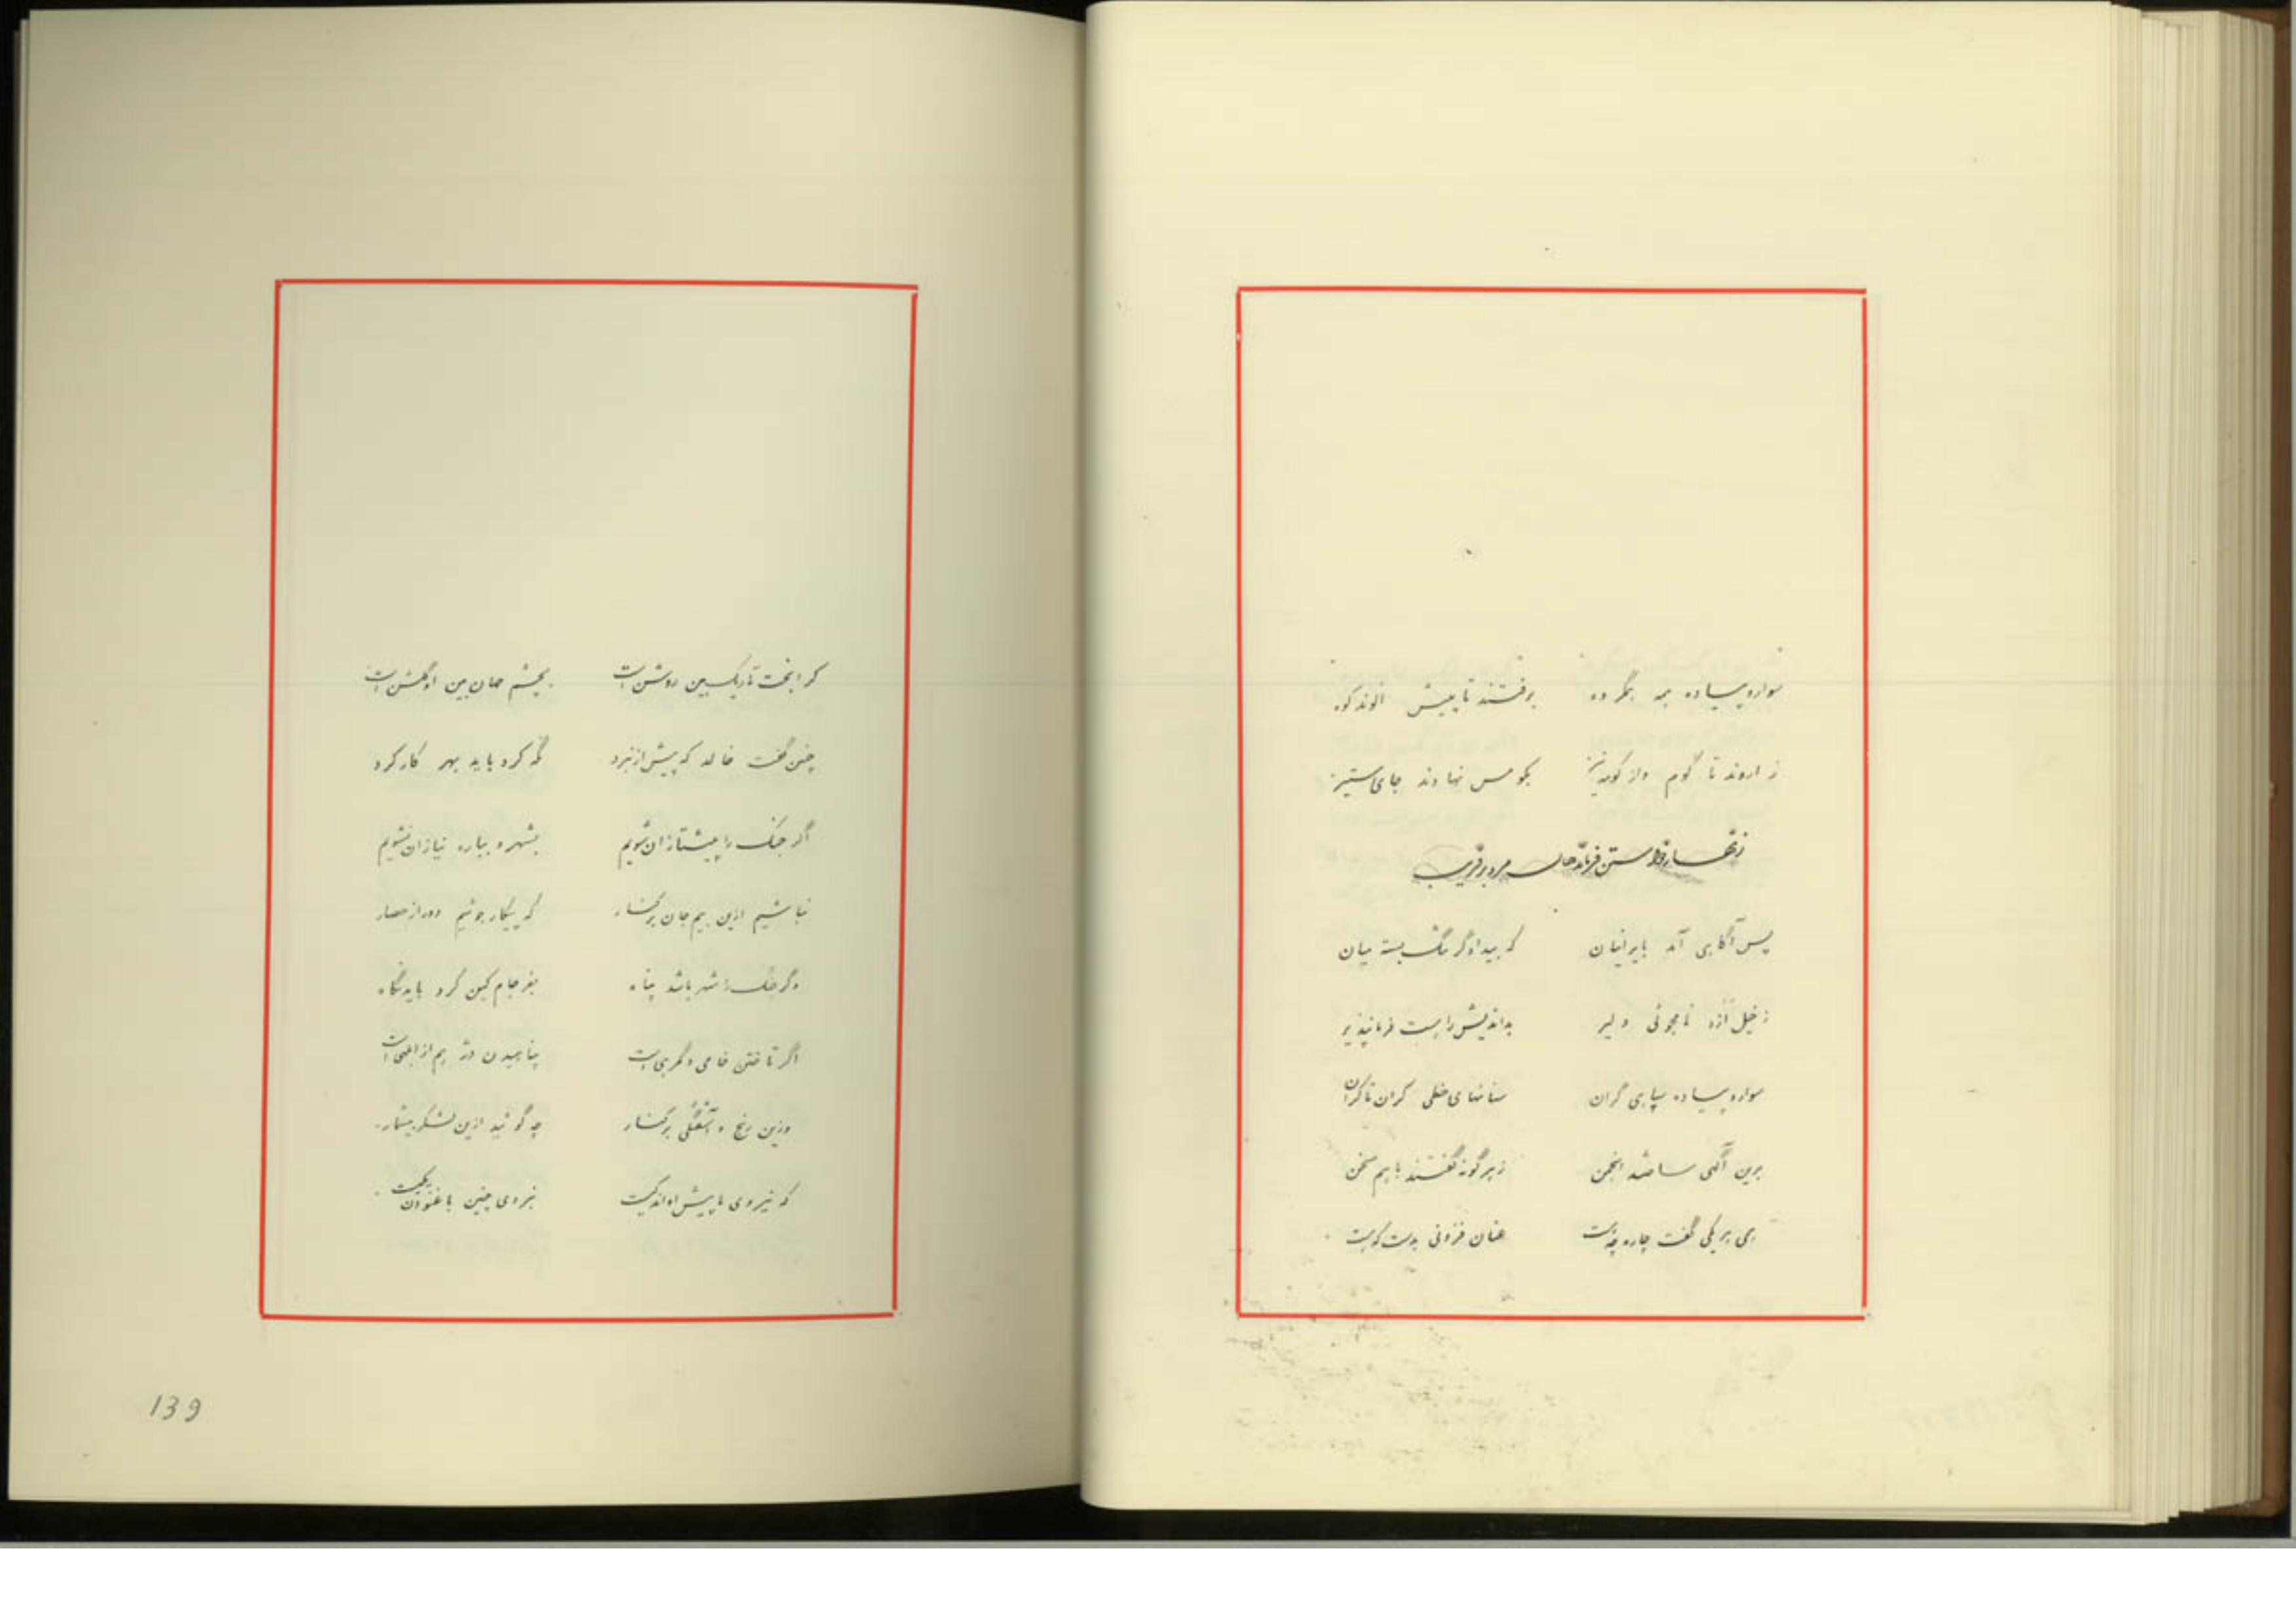 سواره پیاده همه بگروه برفتند تا پیش الوند کوه
ز اروند تا گوم واز کوه نیز بکومس نهادند جای ستیز
زنهار خواستن
پس آگاهی آمد بایرانیان که بیدادگر تنگ بسته میان
ز خیل نامجوئی دلیر بداندیش راهست فرمانپذیر
سواره پیاده سپاهی گران سنانهای خطی کران تا کران
برین آگهی ساخته شد انجمن ز هر گونه گفتند با هم سخن
همی هر یکی گفت چاره چیست عنان فزونی بدست که‌یست
کرا بخت تاریک بین روشن است بچشم جهان بین او گلشن است
چنین گفت خالد که پیش از نبرد نگه کرد باید بهر کار کرد
اگر جنگ را پیشتازان شویم بشهر و بباره نیازان نشویم
نباشیم ازین بیم جان برکنار که پیکار جوئیم دور از حصار
وگر جنگ را شهر باشد پناه بفرجام کین کرد باید نگاه
اگر تاختن خامی و گمرهی است پناهیدن دژ هم از ابلهی است
وزین رنج و آشفتگی برکنار چه گوئید ازین لشکر بیشمار
که نیروی ما پیش او اندکیست نبردی چنین با غنودن یکیست
139